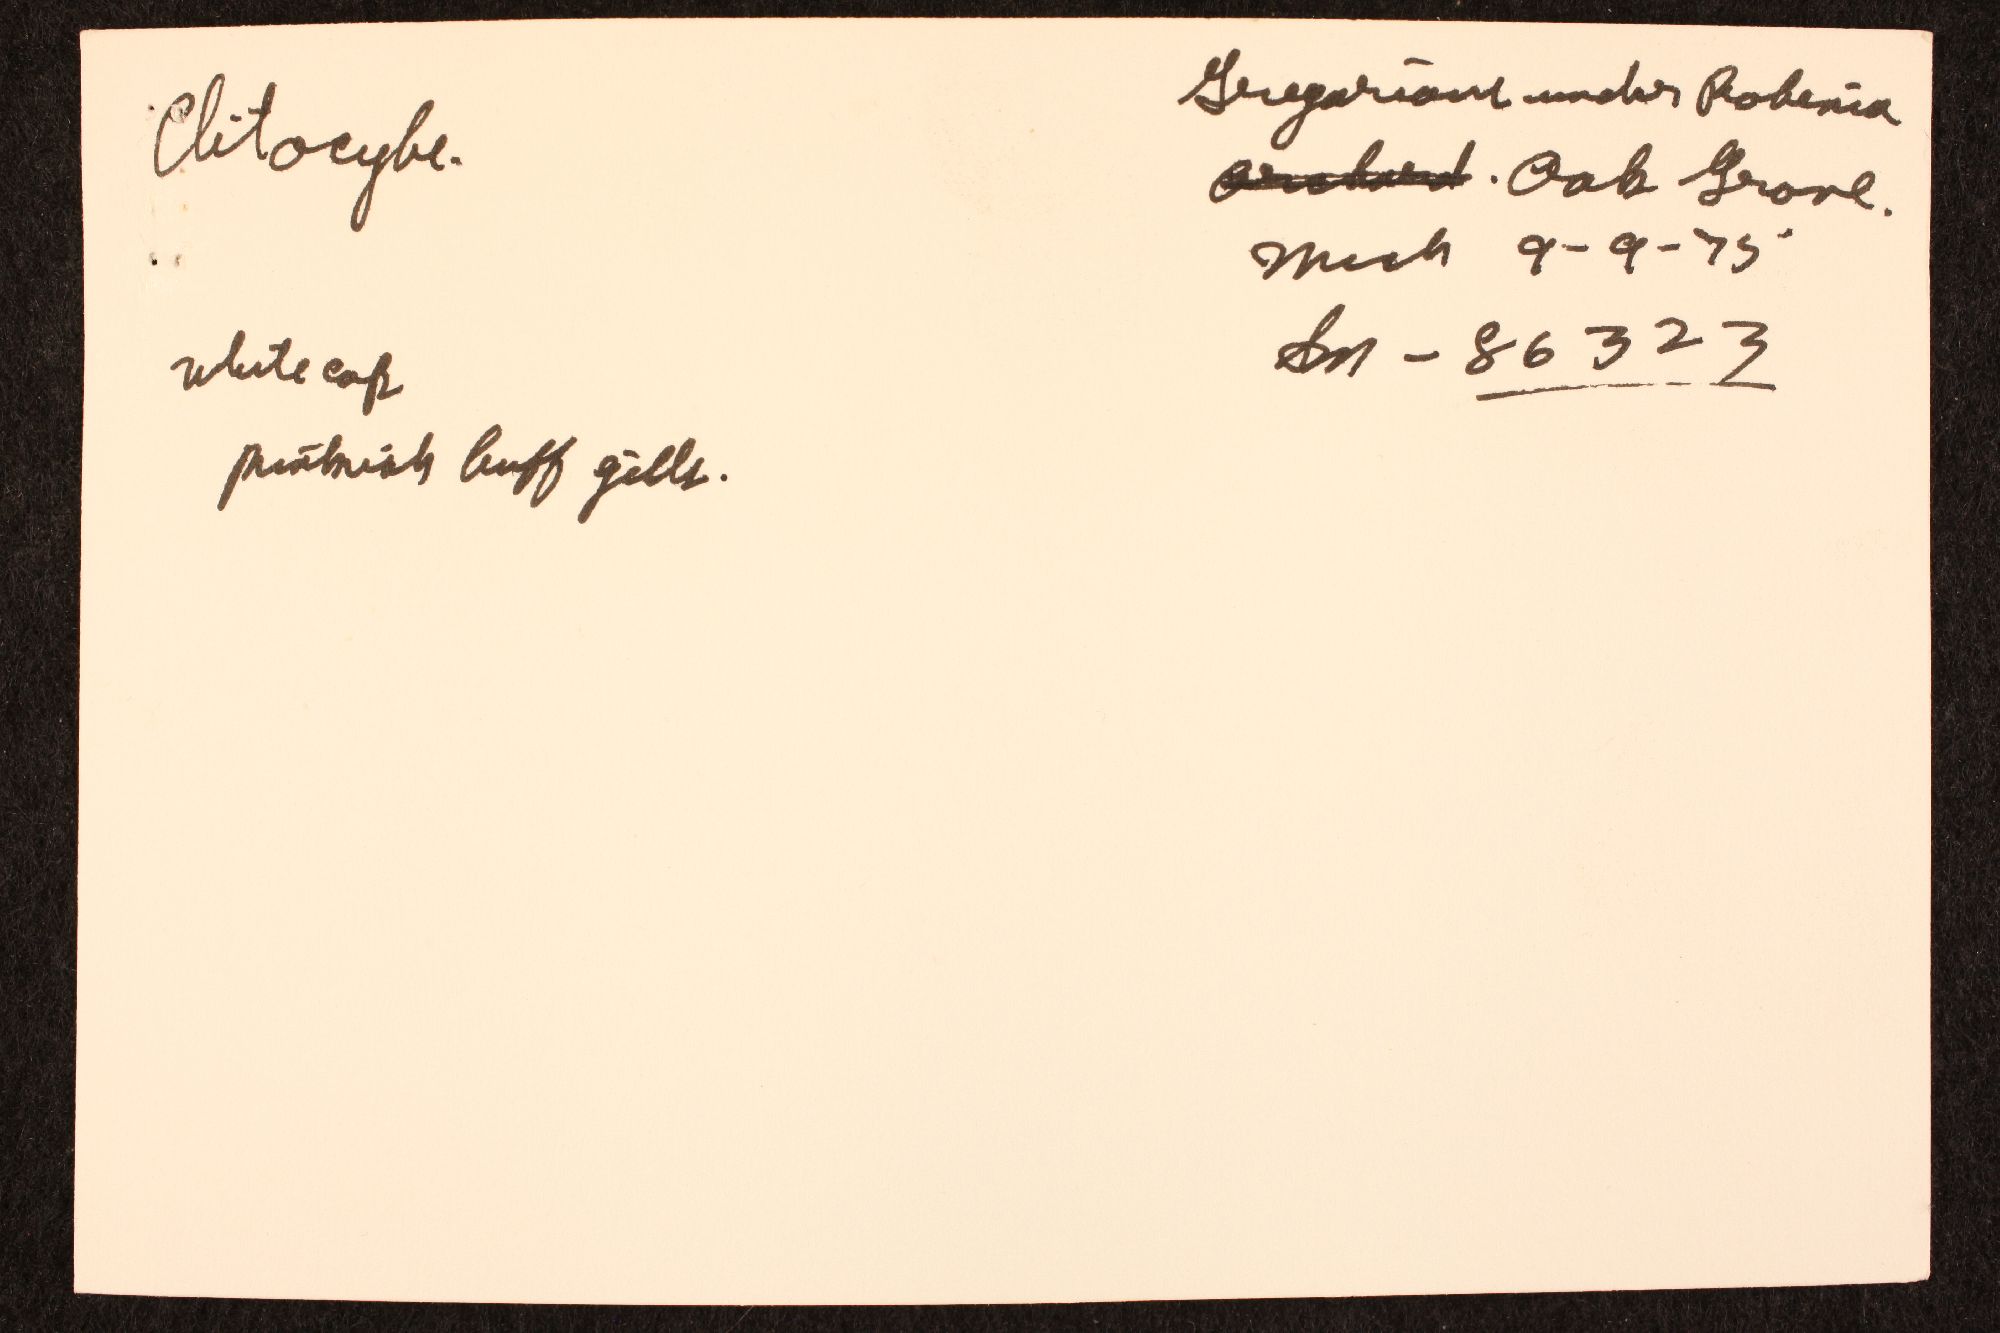 Clitocybe.
Gregarious under Robinia
orchard. Oak Grove.
Mich 9-9-75
Sm - 86323
white cap
pinkish buff gills.